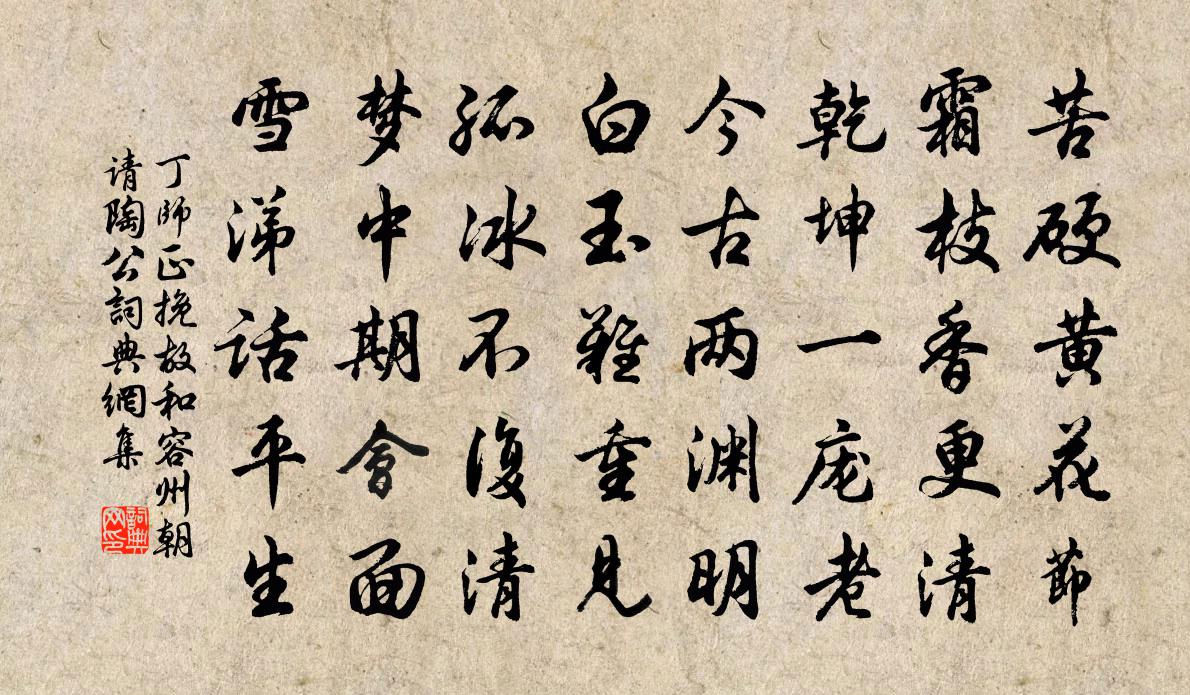 苦硬黄花節
霜枝香更清
乾坤一庞老
今古两渊明
白玉難重見
孤冰不復清
梦中期會面
雪涕話平生
丁師正挽故和容州朝
请陶公詞典網集
詞典网印